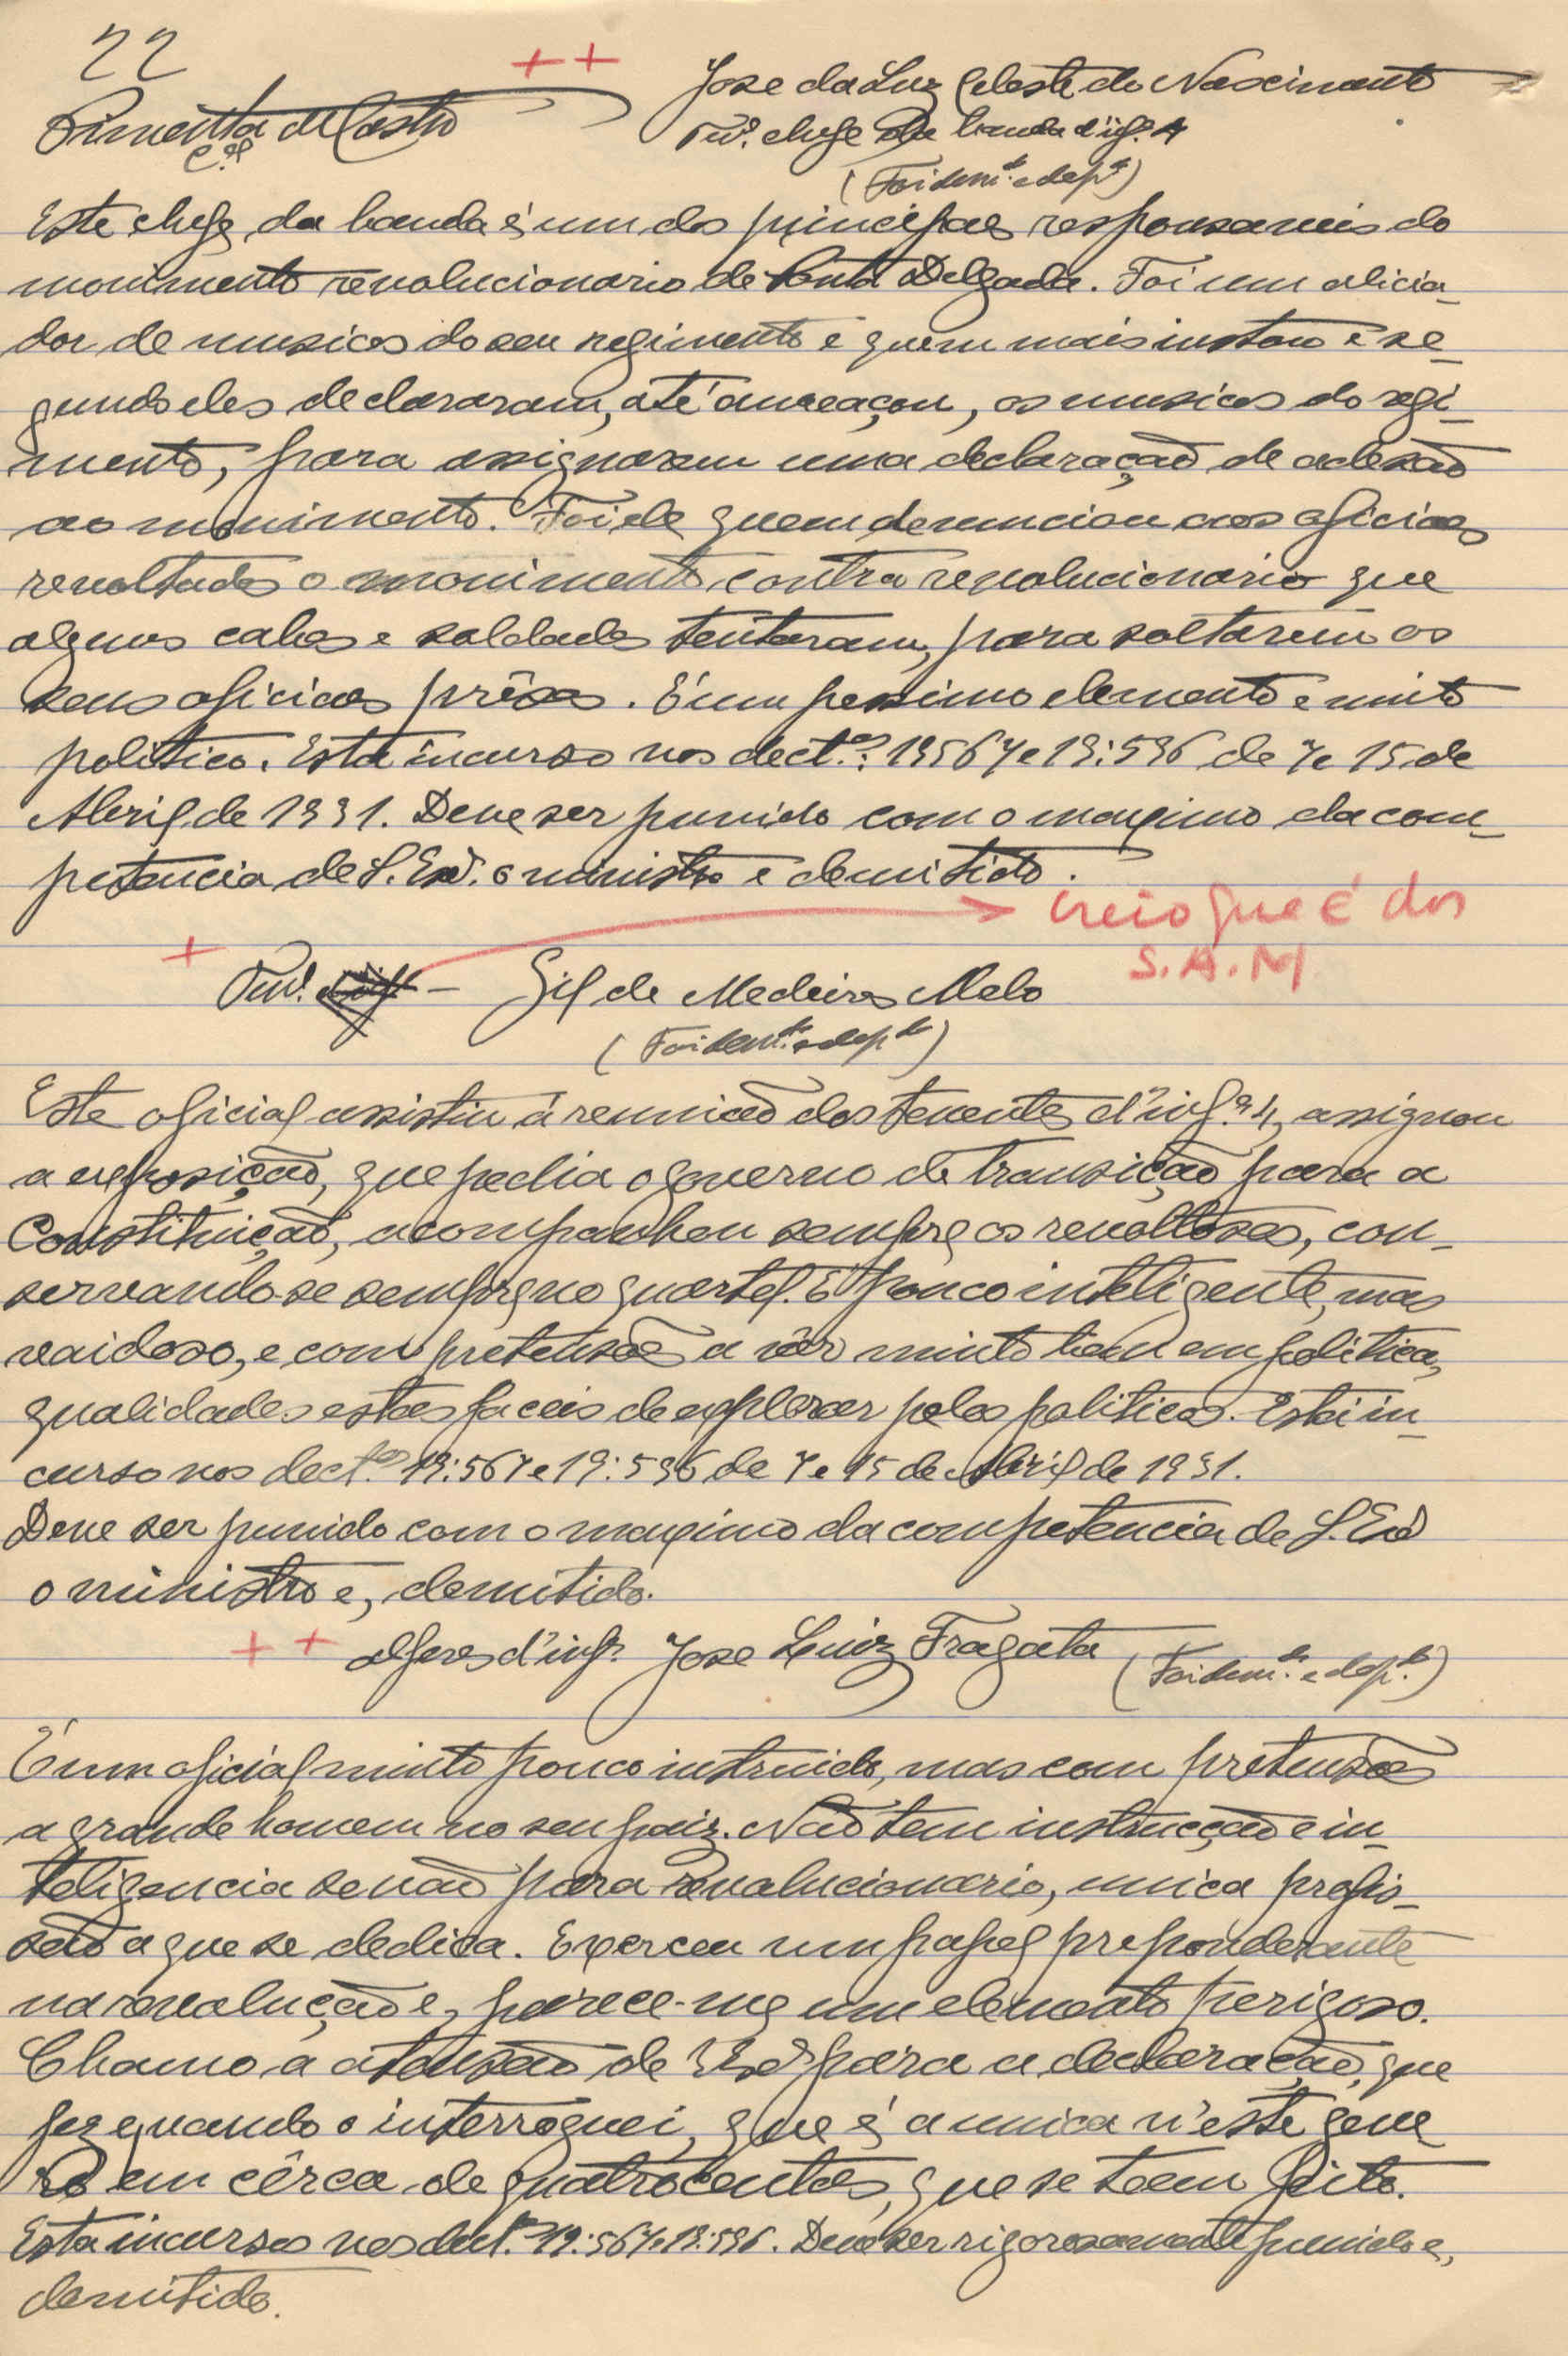 22
++
Pimenta de Castro
C.el
José da Luz Celeste do Nascimento
Ten. chefe da banda d'inf.ª 4
(Foi dem.do e dep.do)
Este chefe da banda é um dos principaes responsaveis do
movimento revolucionario de Ponta Delgada. Foi um alicia-
dor de musicos do seu regimento e quem mais instou e se-
gundo eles declararam, até ameaçou, os musicos do regi-
mento, para assignarem uma declaração de adesão
ao movimento. Foi ele quem denunciou aos oficiaes
revoltados o movimento contra revolucionario que
alguns cabos e soldados tentaram, para soltarem os
seus oficiaes prêsos. É um pessimo elemento e muito
politico. Está incurso nos dect.os: 19567 e 19:596 de 7 e 15 de
Abril de 1931. Deve ser punido com o maximo da com-
petencia de S. Ex.ª o ministro e demitido.
creio que é dos
S.A.M
+
Ten. – Gil de Medeiros Melo
(Foi dem.do e dep.do)
Este oficial assistiu á reunião dos tenentes d'inf.ª 4, assignou
a exposição, que pedia o governo de transição para a
Constituição, acompanhou sempre os revoltosos, con-
servando-se sempre no quartel. É pouco inteligente, mas
vaidoso, e com pretensões a vêr muito bem em politica,
qualidades estas faceis de explorar pelos politicos. Está in-
curso nos dect.os 19:567 e 19:596 de 7 e 15 de Abril de 1931.
Deve ser punido com o maximo da competencia de S. Ex.ª
o ministro e, demitido.
++ alferes d'inf.ª José Luiz Fragata (Foi dem.do e dep.do)
É um oficial muito pouco instruido, mas com pretensões
a grande homem no seu paiz. Não tem instrucção e in-
teligencia senão para revolucionario, unica profis-
são a que se dedica. Exerceu um papel preponderante
na revolução e, parece-me um elemento perigoso.
Chamo a atensão de V. Ex.ª para a declaração, que
fez quando o interroguei, que é a unica n'este gene
ro em cêrca de quatrocentos, que se teem feito.
Esta incurso nos dect.os 19:567 e 19:596. Deve ser rigorosamente punido e,
demitido.